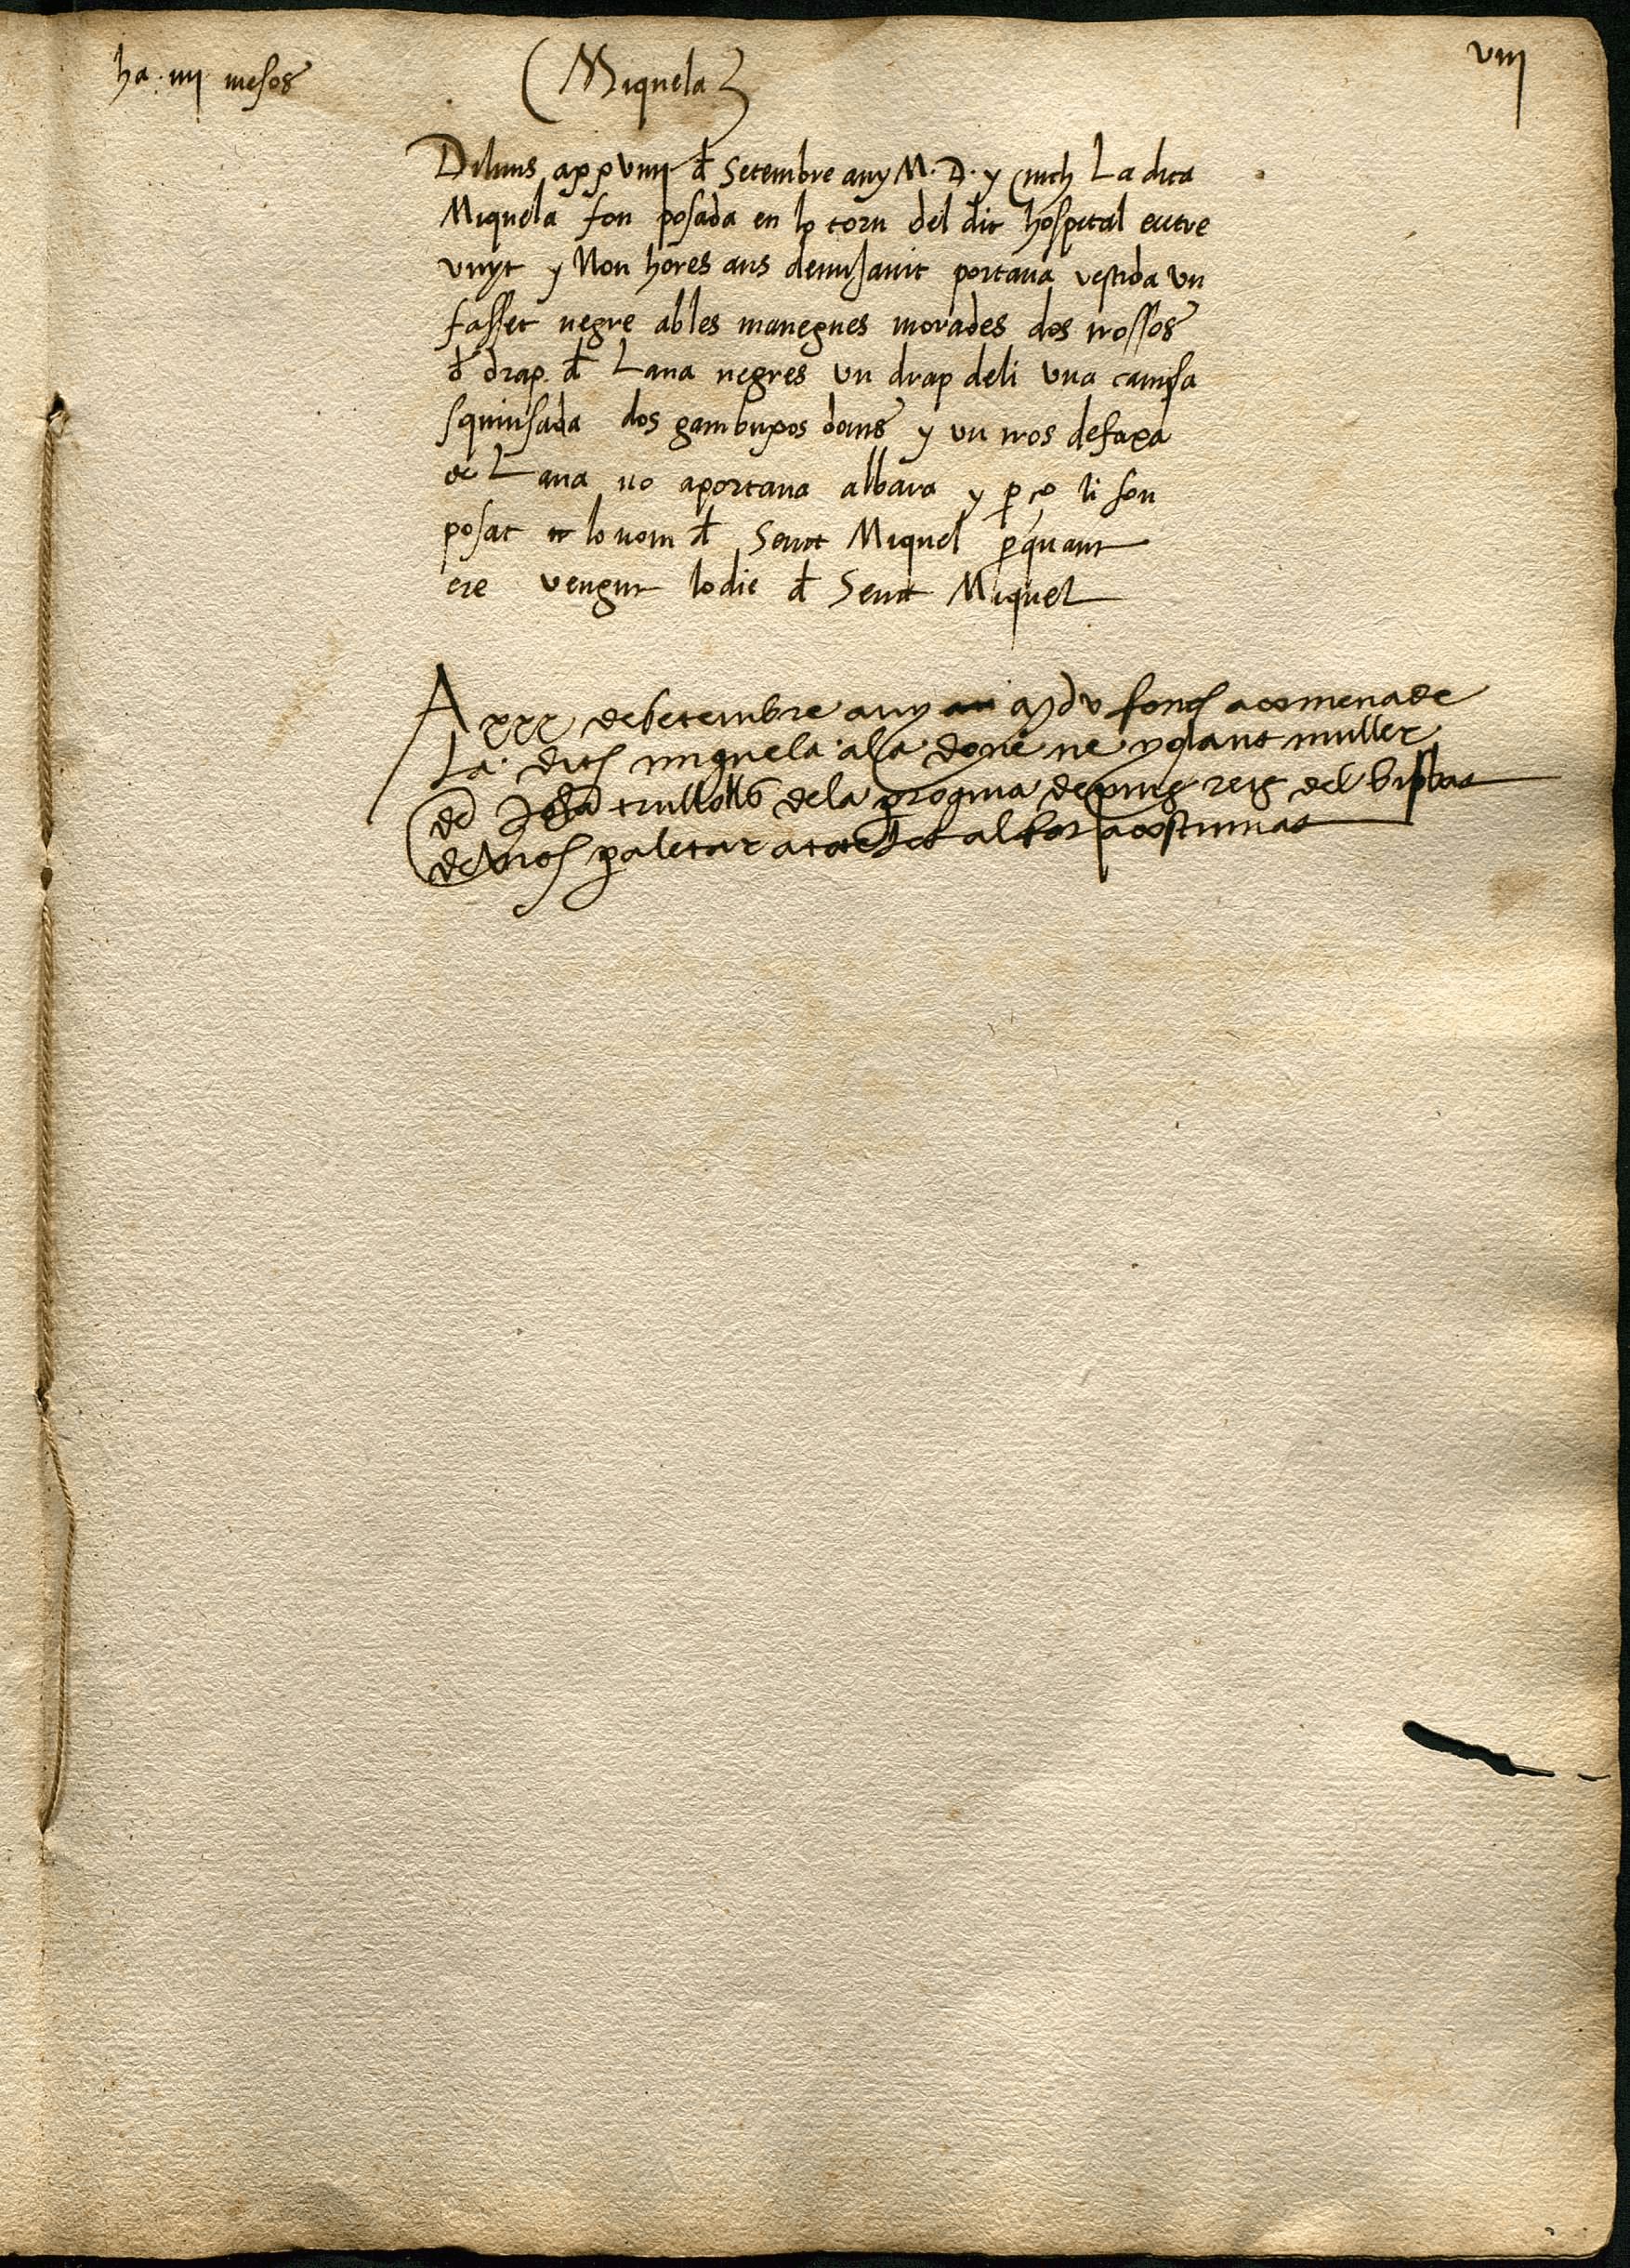 ha. iiij mesos
Miquela
viij
Diluns a xxviiij d Setembre any M. D. y sinch La dita
Miquela fon posada en lo torn del dit hospital entre
vuyt y Nou hores ans de mijanit portaua vestida vn
fasset negre ab les manegues morades dos trossos
d drap d Lana negres vn drap de li vna camisa
squinsada dos gambuxos dolens y vn tros de faxa
de Lana no aportaua albara y p ço li fon
posat lo nom d Senct Miquel p quant
ere vengut lo die d Senct Miquel
A xxx de setembre any Mdv fonch acomenade
La dita miquela a la done ne yolant muller
de Johan trullols de la proquia de puig reig del bisbat
de Vich p aletar a la al for acostumat